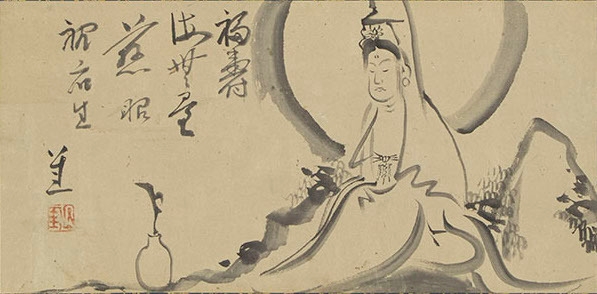 福壽
海無量
慈眼
視衆生